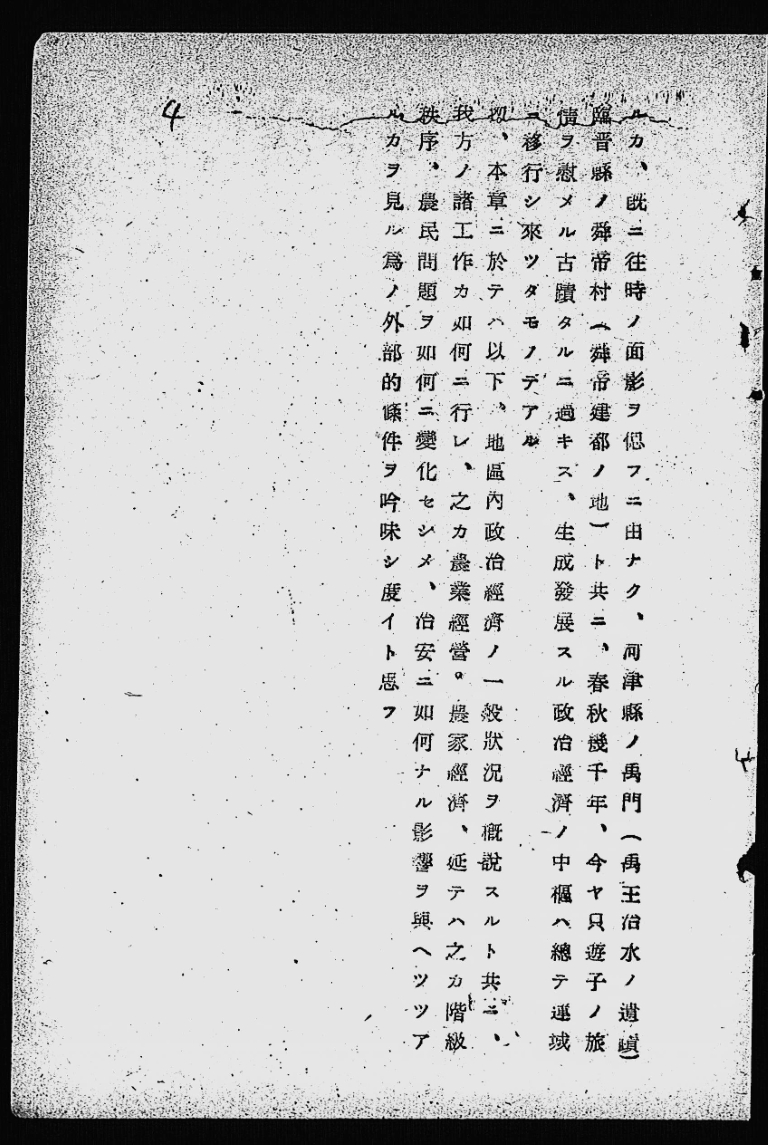 ルカ、既ニ往時ノ面影ヲ偲フニ由ナク、河津縣ノ禹門(禹王治水ノ遺蹟)
臨晋縣ノ舜帝村(舜帝建都ノ地)ト共ニ、春秋幾千年、今ヤ只遊子ノ旅
情ヲ慰メル古蹟タルニ過キス、生成發展スル政治經濟ノ中樞ハ總テ運城
ニ移行シ來ツタモノデアル
扨、本章ニ於テハ以下、地區内政治經濟ノ一般狀況ヲ概説スルト共ニ、
我方ノ諸工作カ如何ニ行レ、之カ農業經營。農家經濟、延テハ之カ階級
秩序、農民問題ヲ如何ニ變化セシメ、治安ニ如何ナル影響ヲ與ヘツツア
ルカヲ見ル爲ノ外部的條件ヲ吟味シ度イト思フ
4